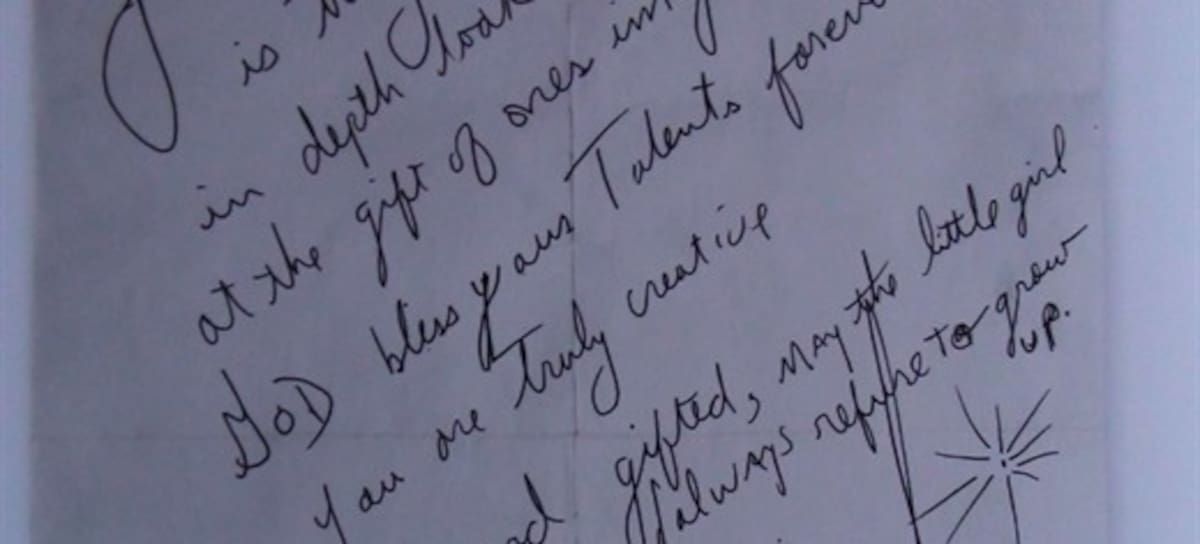 is
in depth look
at the gift of ones
GOD bless your Talents
you are truly creative
gifted, MAY the little girl
always refuse to grow
up.